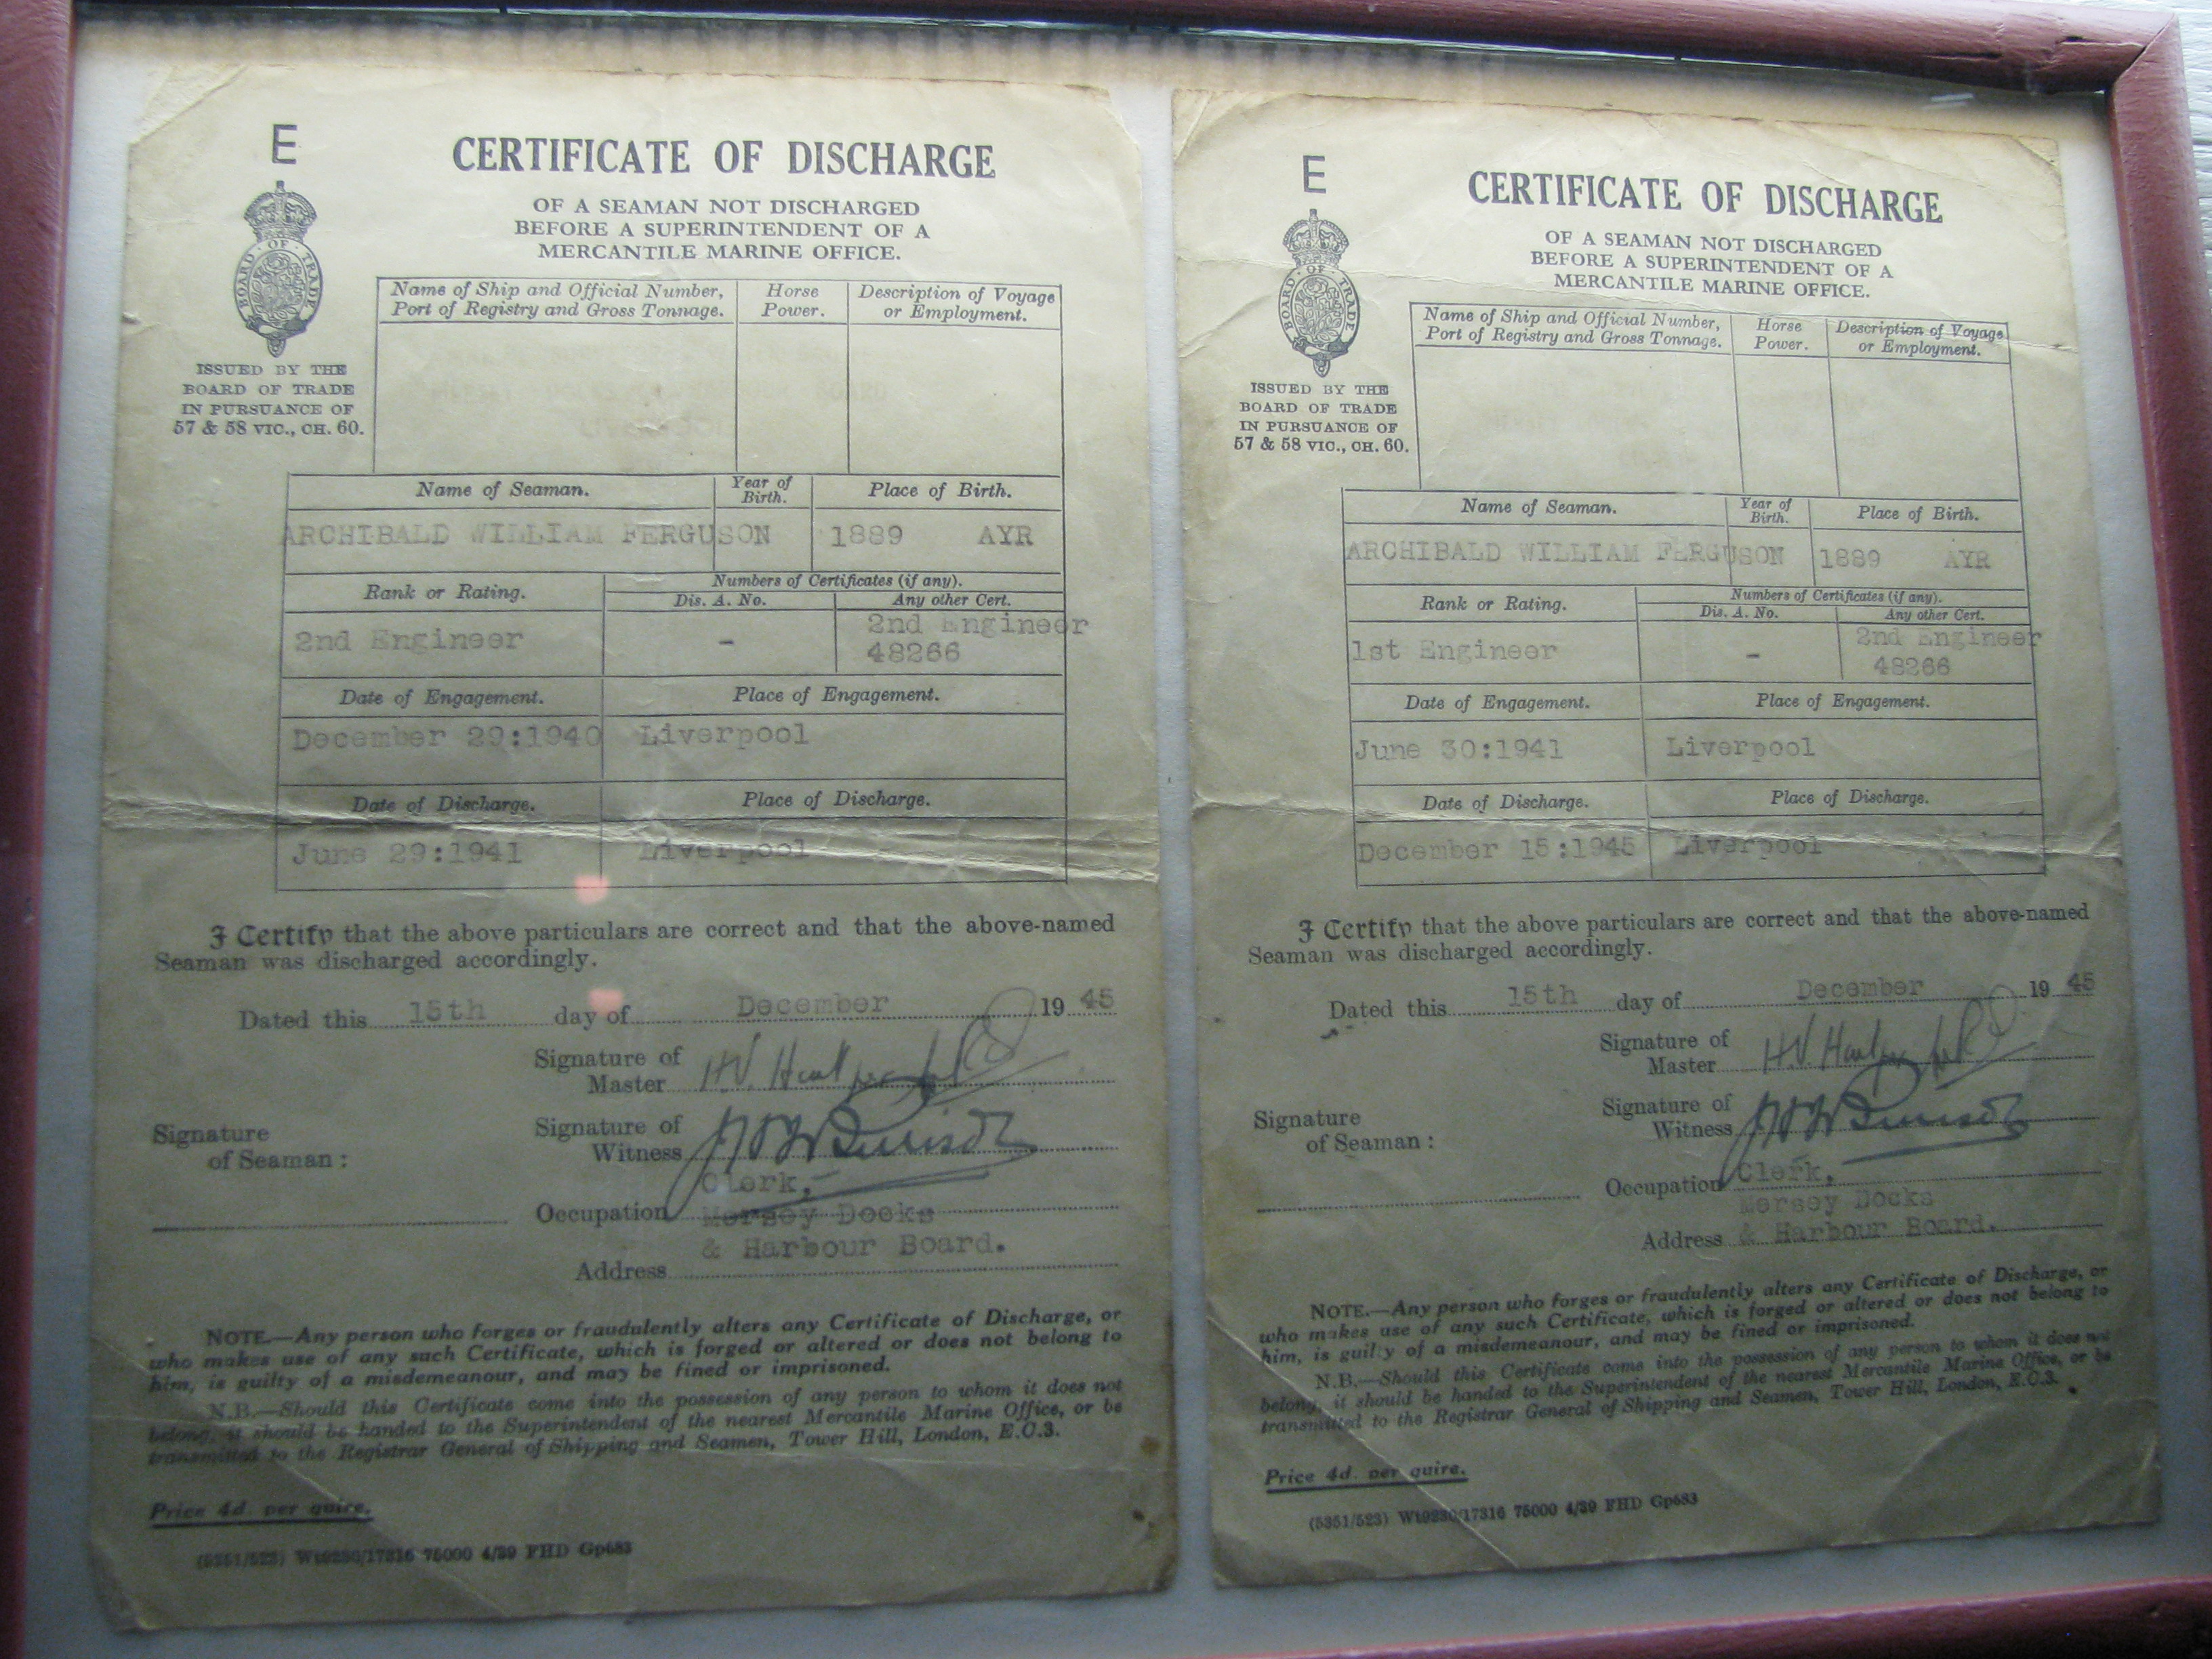 E
CERTIFICATE OF DISCHARGE
OF A SEAMAN NOT DISCHARGED
BEFORE A SUPERINTENDENT OF A
MERCANTILE MARINE OFFICE.
BOARD OF TRADE
ISSUED BY THE
BOARD OF TRADE
IN PURSUANCE OF
57 & 58 VIC., CH. 60.
Name of Ship and Official Number,
Port of Registry and Gross Tonnage.
Horse
Power.
Description of Voyage
or Employment.
Name of Seaman.
Year of
Birth.
Place of Birth.
ARCHIBALD WILLIAM FERGUSON 1889 AYR
Rank or Rating.
Numbers of Certificates (if any).
Dis. A. No.
Any other Cert.
2nd Engineer
-
2nd Engineer
48266
Date of Engagement.
Place of Engagement.
December 29:1940 Liverpool
Date of Discharge.
Place of Discharge.
June 29:1941 Liverpool
I Certify that the above particulars are correct and that the above-named
Seaman was discharged accordingly.
Dated this 15th day of December 19 45
Signature of
Master H.V.
Signature of
Witness
Signature
of Seaman:
Clerk,
Occupation Mersey Docks
& Harbour Board.
Address
NOTE.—Any person who forges or fraudulently alters any Certificate of Discharge, or
who makes use of any such Certificate, which is forged or altered or does not belong to
him, is guilty of a misdemeanour, and may be fined or imprisoned.
N.B.—Should this Certificate come into the possession of any person to whom it does not
belong, it should be handed to the Superintendent of the nearest Mercantile Marine Office, or be
transmitted to the Registrar General of Shipping and Seamen, Tower Hill, London, E.C.3.
Price 4d. per quire.
(5351/523) Wt9230/17316 75000 4/39 FHD Gp683
E
CERTIFICATE OF DISCHARGE
OF A SEAMAN NOT DISCHARGED
BEFORE A SUPERINTENDENT OF A
MERCANTILE MARINE OFFICE.
BOARD OF TRADE
ISSUED BY THE
BOARD OF TRADE
IN PURSUANCE OF
57 & 58 VIC., CH. 60.
Name of Ship and Official Number,
Port of Registry and Gross Tonnage.
Horse
Power.
Description of Voyage
or Employment.
Name of Seaman.
Year of
Birth.
Place of Birth.
ARCHIBALD WILLIAM FERGUSON 1889 AYR
Rank or Rating.
Numbers of Certificates (if any).
Dis. A. No.
Any other Cert.
1st Engineer
-
2nd Engineer
48266
Date of Engagement.
Place of Engagement.
June 30:1941 Liverpool
Date of Discharge.
Place of Discharge.
December 15:1945 Liverpool
I Certify that the above particulars are correct and that the above-named
Seaman was discharged accordingly.
Dated this 15th day of December 19 45
Signature of
Master H.V.
Signature of
Witness
Signature
of Seaman:
Occupation Clerk,
Mersey Docks
Address & Harbour Board.
NOTE.—Any person who forges or fraudulently alters any Certificate of Discharge, or
who makes use of any such Certificate, which is forged or altered or does not belong to
him, is guilty of a misdemeanour, and may be fined or imprisoned.
N.B.—Should this Certificate come into the possession of any person to whom it does not
belong, it should be handed to the Superintendent of the nearest Mercantile Marine Office, or be
transmitted to the Registrar General of Shipping and Seamen, Tower Hill, London, E.C.3.
Price 4d. per quire.
(5351/523) Wt9230/17316 75000 4/39 FHD Gp683